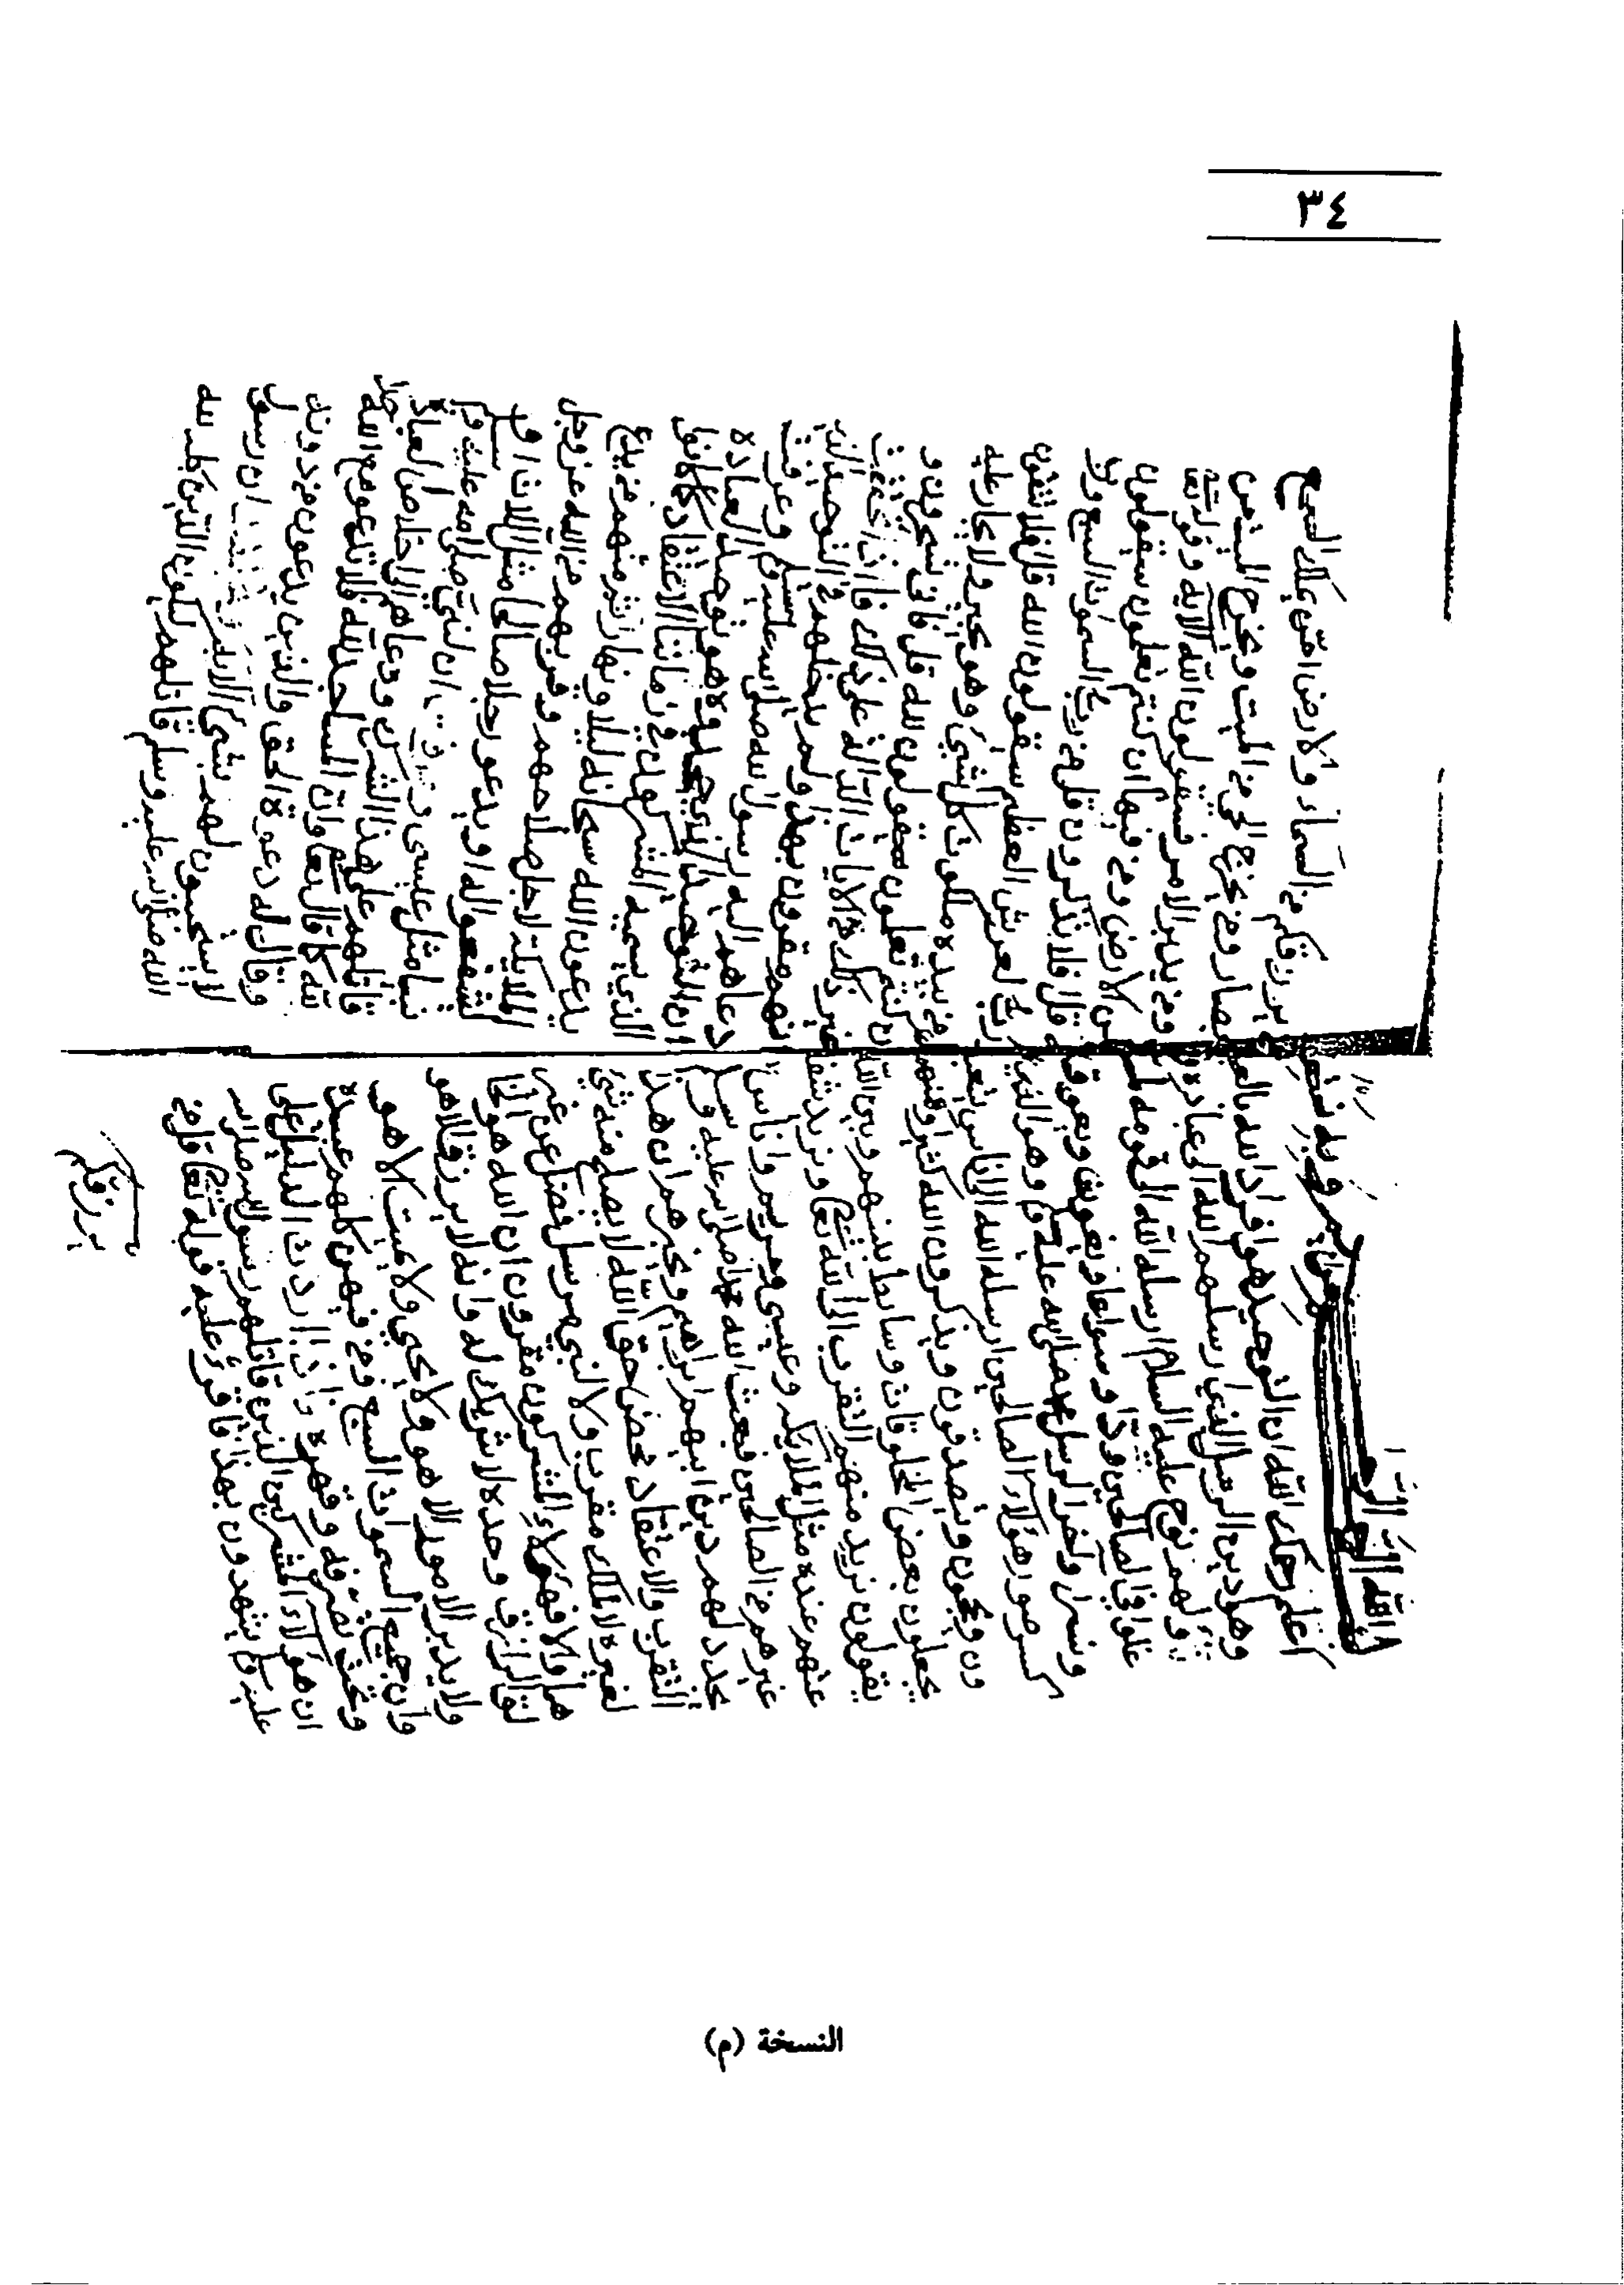 ٣٤
بسم الله الرحمن الرحيم وبه نستعين
أعلم رحمك الله ان التوحيد هو افراد الله بالعبادة
وهو دين الرسل الذي ارسلهم الله الى عباده
ولهم نوح عليه السلام ارسله الله الى قومه لما
غلوا في الصالحين ودا وسواعا ويغوث ويعوق
ونسرا واخر الرسل محمد صلى الله عليه وسلم وهو الذي
كسر صور هؤلاء الصالحين ارسله الله الى اناس يتعبد
ون ويحجون ويتصدقون ويذكرون الله كثيرا ولكنهم
يجعلون بعض المخلوقات وسايط بينهم وبين الله
يقولون نريد منهم التقرب الى الله تعالى ونريد شفا
عتهم عنده مثل الملايكه وعيسى ومريم واناس
غيرهم من الصالحين فبعث الله محمدا صلى الله عليه وسلم
يجدد لهم دين ابيهم ابراهيم ويخبرهم ان هذا
التقرب والاعتقاد محض حق الله لا يصلح منه شي
لغيره لا لملك مقرب ولا لنبي مرسل فضلا عن غير
هما والا فهؤلاء المشركون مقرون ان الله هو الخا
لق الرازق وحده لا شريك له وانه لا يرزق الا هو
ولا يدبر الامر الا هو ولا يحيي ولا يميت الا هو
وان جميع السموات السبع ومن فيهن كلهم عبيده
وتحت تصرفه وقهره واذا اردت الدليل على
ان هؤلاء المشركين الذين قاتلهم رسول الله صلى الله
عليه وسلم يشهدون بهذا فاقرء عليه قوله تعالى قل من
يرزقكم
يرزقكم من السماء والارض امن يملك السمع
والابصار ومن يخرج الحي من الميت ويخرج الميت من
الحي ومن يدبر الامر فسيقولون الله الآية وقوله تعالى
قل لمن الارض ومن فيها ان كنتم تعلمون سيقولون
لله قل افلا تذكرون قل من رب السموات السبع ورب
العرش العظيم سيقولون الله قل افلا تتقون
قل من بيده ملكوت كل شيء وهو يجير ولا يجار عليه
ان كنتم تعلمون سيقولون لله قل فانى تسحرون و
غير ذلك من الايات الدالة على ذلك فاذا تحققت
انهم مقرون بهذا ولم يدخلهم في التوحيد الذي
دعاهم اليه رسول الله صلى الله عليه وسلم وعرفت
ان التوحيد الذي جحدوه هو توحيد العبادة
الذي يسميه المشركون في زماننا الاعتقاد كما كانوا
يدعون الله سبحانه ليلا ونهارا ثم منهم من يدعو
الملايكة لاجل صلاحهم وقربهم من الله عز وجل
ليشفعوا له او يدعو رجلا صالحا مثل اللات او
نبيا مثل عيسى وعرفت ان النبي صلى الله عليه وسلم
قاتلهم على هذا الشرك ودعاهم الى اخلاص العبادة
لله كما قال تعالى وان المساجد لله فلا تدعو مع الله احدا
وقال له دعوة الحق والذين يدعون من دونه
لا يستجيبون لهم بشيء الاية ان رسول
الله صلى الله عليه وسلم قاتلهم ليكون الدين كله لله
النسخة (م)